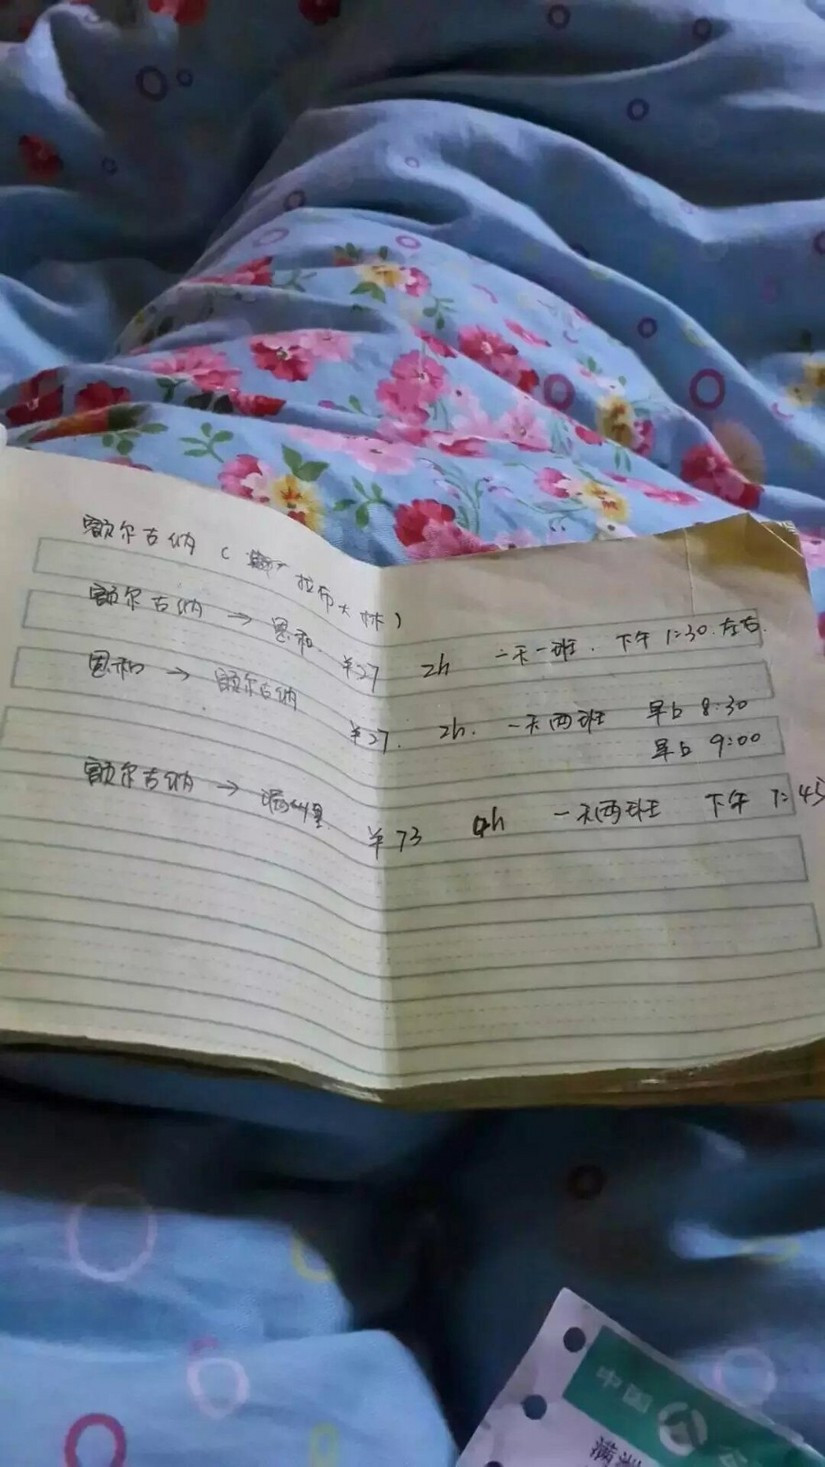 额尔古纳 ( 拉布大林 )
额尔古纳 → 恩和 ¥27 2h 一天一班. 下午 1:30.左右.
恩和 → 额尔古纳 ¥27. 2h. 一天两班 早上 8:30
早上 9:00
额尔古纳 → 满州里 ¥73 4h 一天两班 下午 1:45
中国
满洲